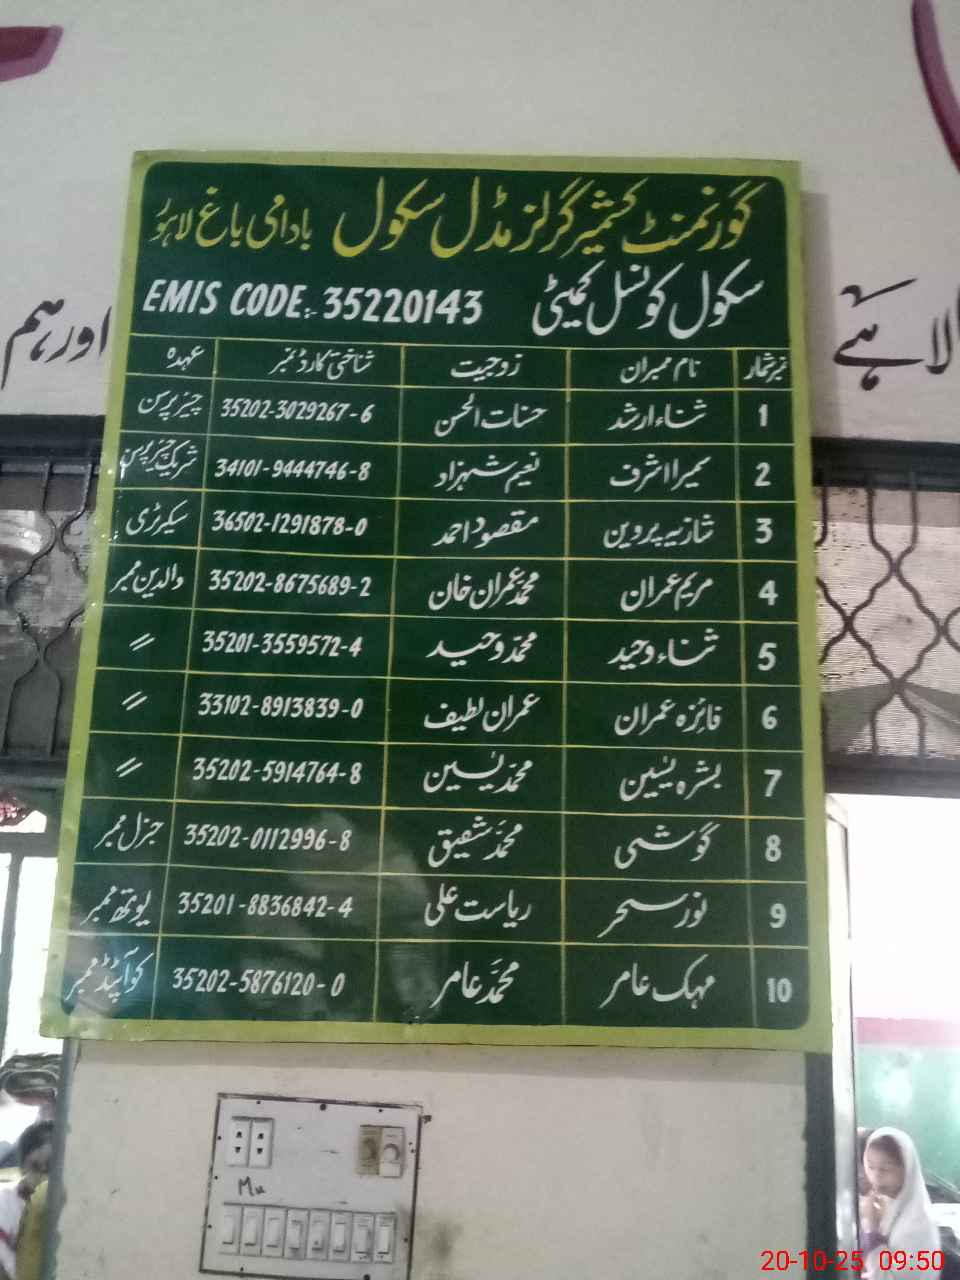 گورنمنٹ کشمیر گرلز مڈل سکول بادامی باغ لاہور
سکول کونسل کمیٹی EMIS CODE:- 35220143
نمبر شمار نام ممبران زوجیت شناختی کارڈ نمبر عہدہ
1 ثناء ارشد حسنات الحسن 35202-3029267-6 چیئر پرسن
2 سمیرا اشرف نعیم شہزاد 34101-9444746-8 شریک چیئر پرسن
3 شازیہ پروین مقصود احمد 36502-1291878-0 سیکرٹری
4 مریم عمران محمد عمران خان 35202-8675689-2 والدین ممبر
5 ثناء وحید محمد وحید 35201-3559572-4 //
6 فائزہ عمران عمران لطیف 33102-8913839-0 //
7 بشرہ یٰسین محمد یٰسین 35202-5914764-8 //
8 گوشی محمد شفیق 35202-0112996-8 جنرل ممبر
9 نور سحر ریاست علی 35201-8836842-4 یوتھ ممبر
10 مہک عامر محمد عامر 35202-5876120-0 کوآپٹڈ ممبر
لا ہے
اور ہم
Mu
20-10-25 09:50